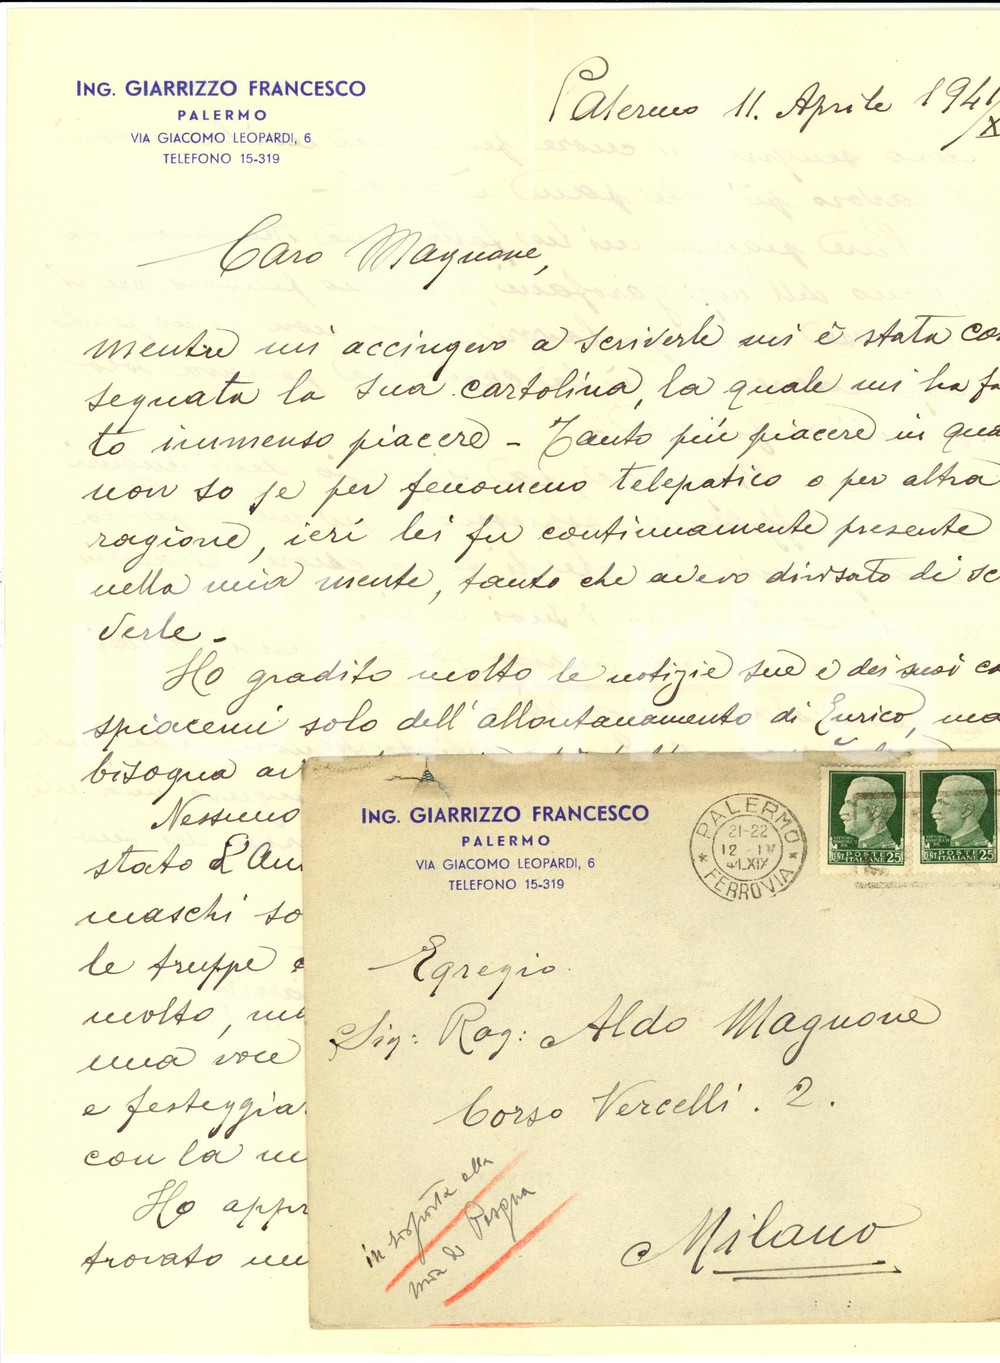 ING. GIARRIZZO FRANCESCO
PALERMO
VIA GIACOMO LEOPARDI, 6
TELEFONO 15-319
Palermo 11. Aprile 1941/X
Caro Magnone,
mentre mi accingevo a scriverle mi è stata con
segnata la sua cartolina, la quale mi ha fa
to immenso piacere - Tanto più piacere in qua
non so se per fenomeno telepatico o per altra
ragione, ieri lei fu continuamente presente
nella mia mente, tanto che avevo divisato di sc
verle -
Ho gradito molto le notizie sue e dei suoi ca
spiacemi solo dell'allontanamento di Enrico, ma
bisogna
Nessuno
stato L'
maschi so
le truppe
molto,
una voce
e festeggia
con la
Ho appr
trovato
ING. GIARRIZZO FRANCESCO
PALERMO
VIA GIACOMO LEOPARDI, 6
TELEFONO 15-319
PALERMO
21-22
12 - IV
41.XIX
* FERROVIA *
CENT. POSTE ITALIANE 25
CENT. POSTE ITALIANE 25
Egregio
Sig: Rag: Aldo Magnone
Corso Vercelli. 2.
Milano
in risposta alla
mia di Pasqua